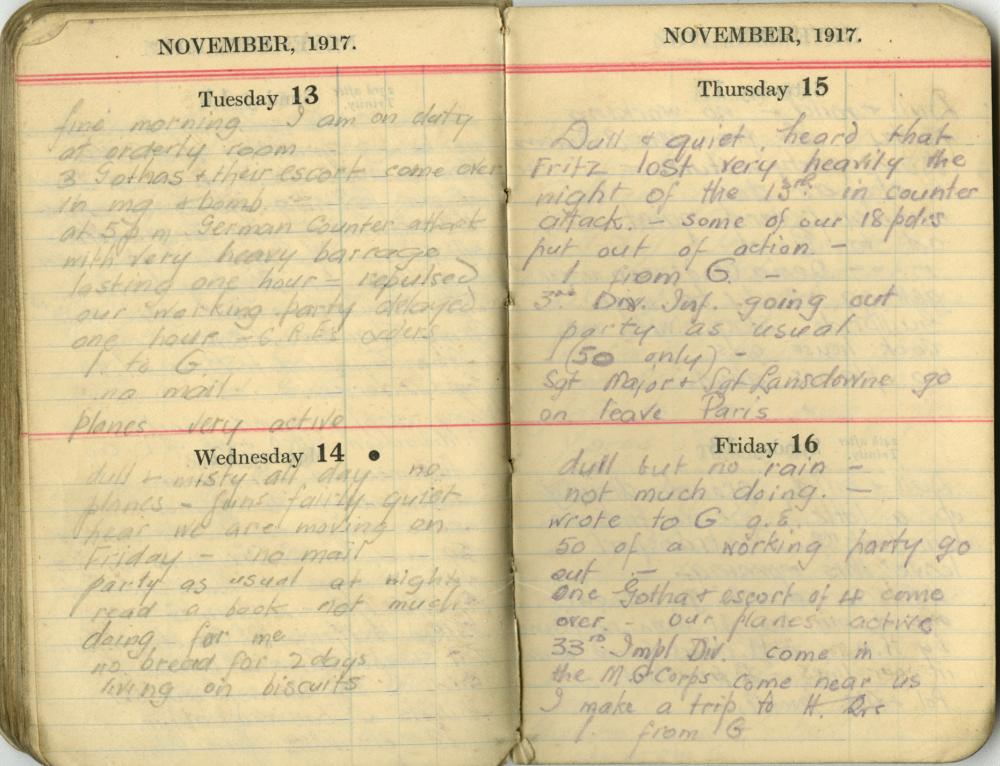 NOVEMBER, 1917.
Tuesday 13
fine morning. I am on duty
at orderly room
3 Gothas & their escort come over
in mg & bomb. —
at 5 p m German Counter attack
with very heavy barrage
lasting one hour – repulsed
our working party delayed
one hour – C.R.E's orders
1. to G.
no mail
planes very active
Wednesday 14 •
dull & misty all day no
planes – guns fairly quiet
hear we are moving on
Friday – no mail
party as usual at night
read a book not much
doing for me
no bread for 2 days
living on biscuits
NOVEMBER, 1917.
Thursday 15
Dull & quiet, heard that
Fritz lost very heavily the
night of the 13th in counter
attack. – some of our 18 pdrs
put out of action. –
1 from G. –
3rd Div. Inf. going out
party as usual
(50 only) –
Sgt Major & Sgt Lansdowne go
on leave Paris
Friday 16
dull but no rain –
not much doing. —
wrote to G a.E.
50 of a working party go
out –
one Gotha & escort of 4 come
over. – our planes active
33rd Impl Div. come in
the M.G Corps come near us
I make a trip to H. Qrs
1. from G